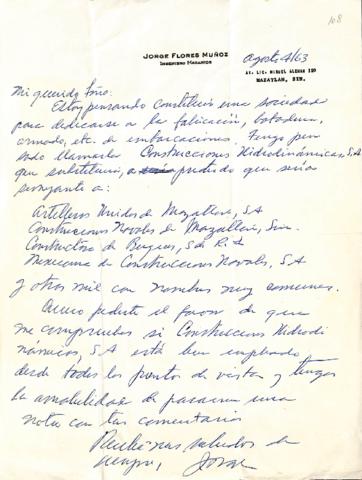 108
JORGE FLORES MUÑOZ
INGENIERO MECANICO
Agosto 4/63
AV. LIC. MIGUEL ALEMAN
MAZATLAN, SIN.
Mi querido
Estoy pensando constituir una sociedad
para dedicarse a la fabricación, botadura,
armado, etc. de embarcaciones. Tengo pen
sado llamarlas Construcciones Hidrodinámicas, S.A
que substituiría, a predio que sería
semejante a:
Astilleros Unidos de Mazatlán, S.A
Construcciones Navales de Mazatlán, Sin.
Constructora de Buques, S de R. L
Mexicana de Construcciones Navales, S.A
y otros mil con nombres muy comunes.
Quiero pedirte el favor de que
me compruebes si Construcciones Hidrodi
námicas, S.A está bien empleado
desde todos los puntos de vista y tengas
la amabilidad de pasarme una
nota con tus comentarios
Recibe mis saludos de
siempre, Jorge